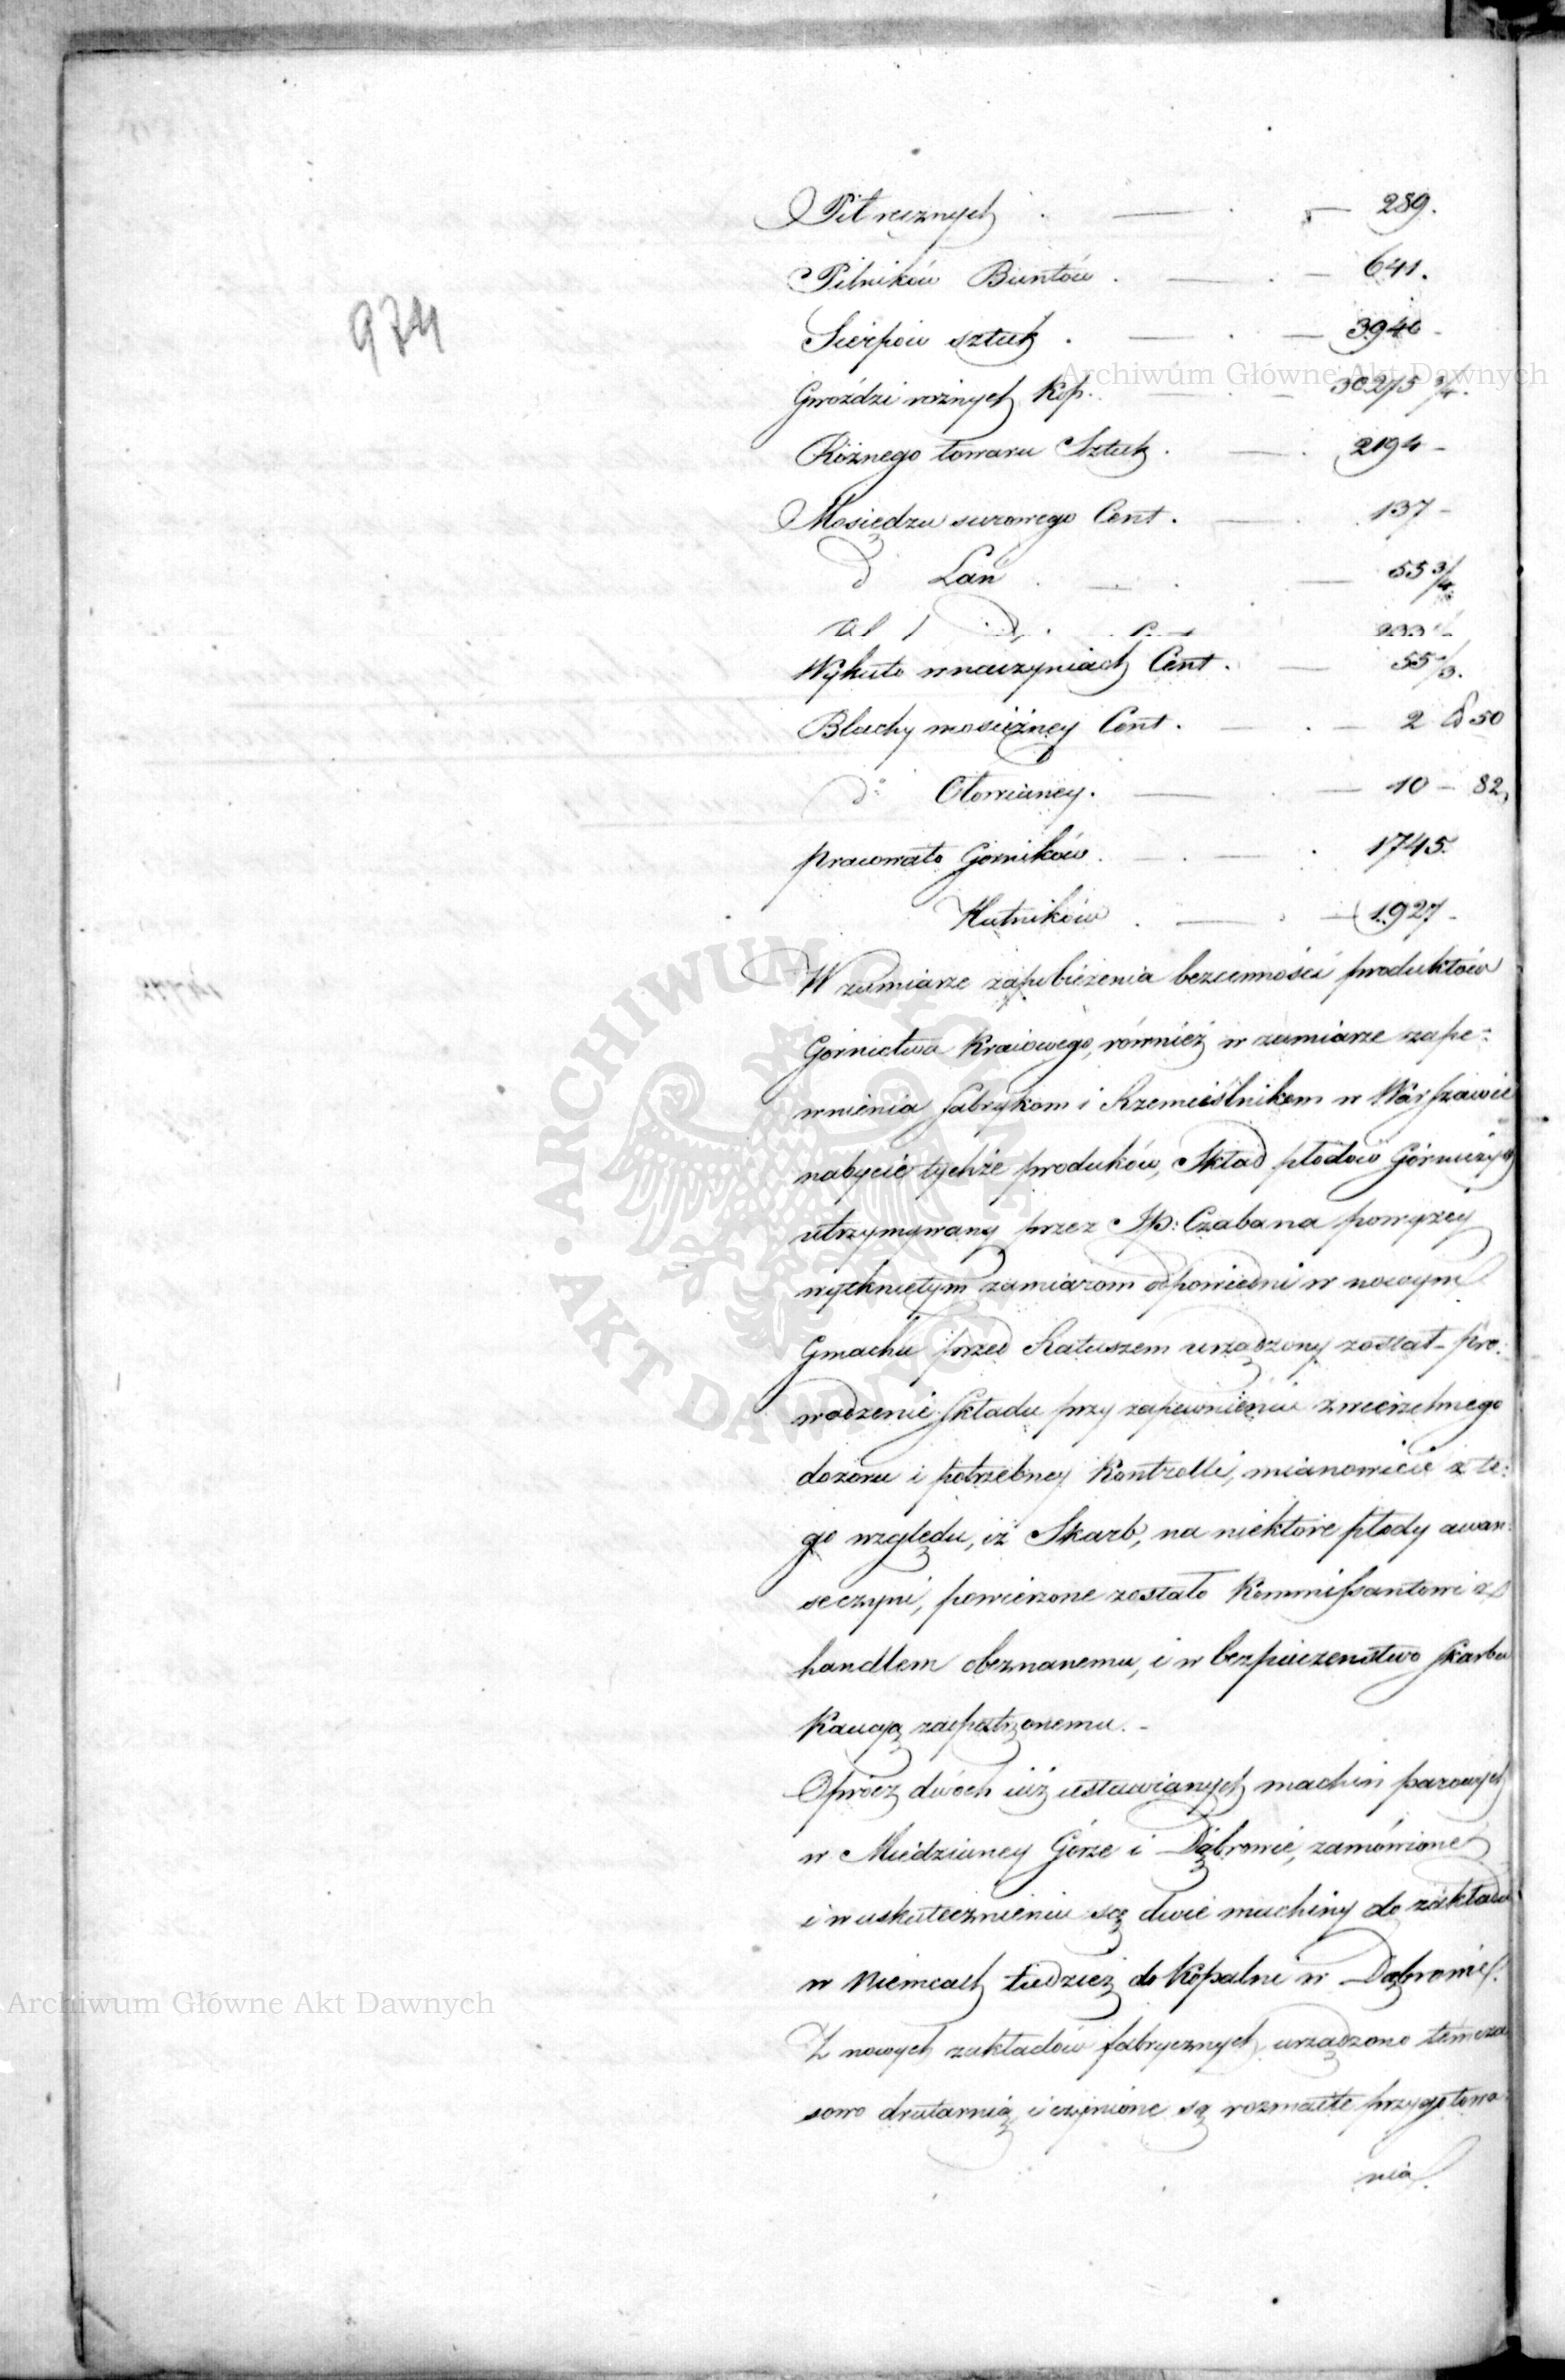 974
Pił ręcznych . — . — 289.
Pilników Buntów . — . — 641.
Sierpów sztuk . — . — 3940 -
Gwoździ rożnych Kop. — . — 30275 3/4.
Rożnego towaru Sztuk . — . 2194 -
Mosiędzu surowego Cent . — . 137 -
d Lan . — . — 55 3/4
Wykuto w naczyniach Cent . — 55 1/3.
Blachy mosiężney Cent . — . — 2 50
do Ołowianey . — . — 10 - 82,
pracowało Górników . — . — . 1745.
Hutników . — . — 1927 -
W zamiarze zapobieżenia bezcenności produktów
Górnictwa Kraiowego, również w zamiarze zape-
wnienia fabrykom i Rzemieślnikom w Warszawie
nabycie tychże produków, Skład płodów Górniczych
utrzymywany przez Jp: Czabana powyżey
wytkniętym zamiarom odpowiedni w nowym
Gmachu przed Ratuszem urządzony został - pro-
wadzenie Składu przy zapewnieniu zwierzchniego
dozoru i potrzebney Kontrolli, mianowicie z te-
go względu, iż Skarb, na niektóre płody awan-
se czyni, powierzone zostało Kommissantowi z
handlem obeznanemu, i w bezpieczeństwo Skarbu
Kaucyą zaopatrzonemu. -
Oprócz dwóch iuż ustawianych machin parowych
w Miedzianey Górze i Dąbrowie, zamówione
i w uskutecznieniu są dwie machiny do zakładu
w Niemcach tudzież do Kopalni w Dąbrowie.
Z nowych zakładów fabrycznych, urządzono temcza
sowo drutarnią, i czynione są rozmaite przygotowa-
nia
Archiwum Główne Akt Dawnych
Archiwum Główne Akt Dawnych
ARCHIWUM GŁÓWNE AKT DAWNYCH